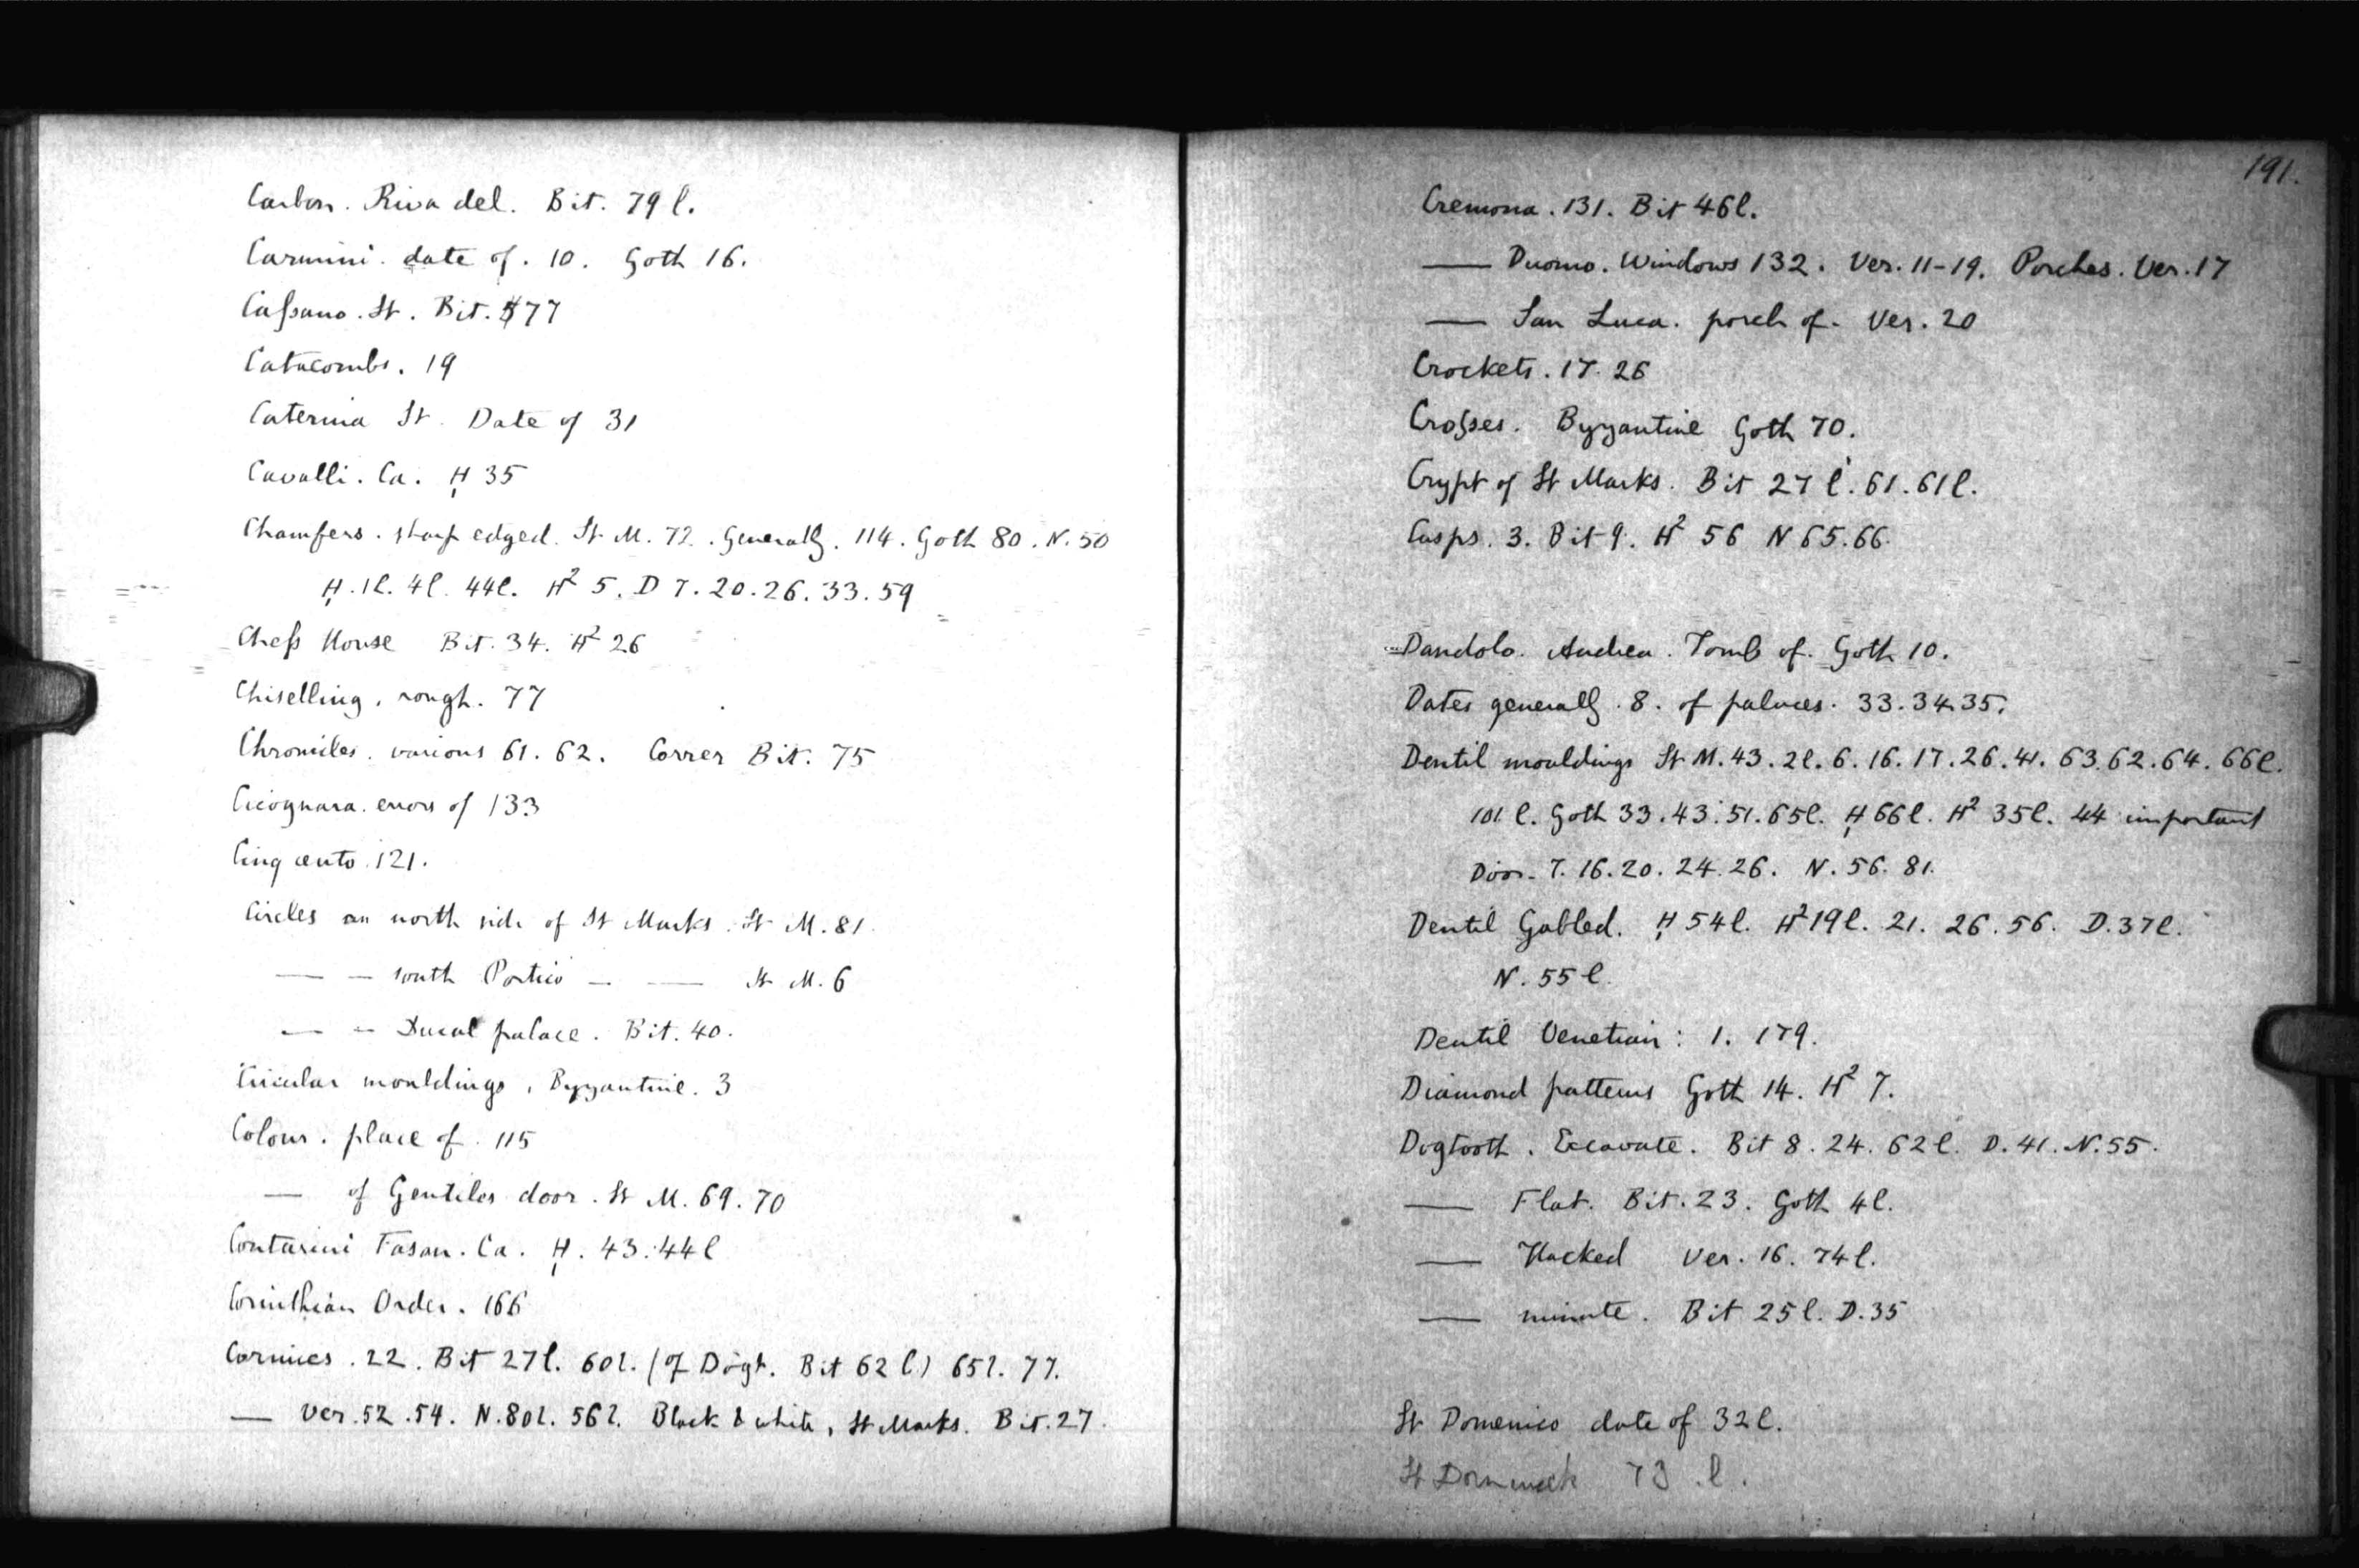 Carbon. Riva del. Bit. 79 l.
Carmini. date of. 10. Goth 16.
Cassano. St. Bit. 77
Catacombs. 19
Caterina St. Date of 31
Cavalli. Ca. H 35
Chamfers. sharp edged. St M. 72. Generally. 114. Goth 80. N. 50
H. 1l. 4l. 44l. H² 5. D 7. 20. 26. 33. 59
Chess House Bit. 34. H² 26
Chiselling, rough. 77
Chronicles. various 61. 62. Correr Bit. 75
Cicognara. errors of 133
Cinq cento. 121.
Circles on north side of St Marks. St M. 81.
— – south Portico – — St M. 6
— – Ducal palace. Bit. 40.
Circular mouldings, Byzantine. 3
Colour. place of. 115
— of Gentiles door. St M. 69. 70
Contarini Fasan. Ca. H. 43. 44 l
Corinthian Order. 166
Cornices. 22. Bit 27l. 60l. (of Dogt. Bit 62 l) 65l. 77.
— Ver. 52. 54. N. 80l. 56l. Black & white, St Marks. Bit. 27.
191.
Cremona. 131. Bit 46l.
— Duomo. Windows 132. Ver. 11-19. Porches. Ver. 17
— San Luca. porch of. Ver. 20
Crockets. 17. 26
Crosses. Byzantine Goth 70.
Crypt of St Marks. Bit 27 l. 61. 61l.
Cusps. 3. Bit 9. H² 56 N 65. 66
Dandolo. Andrea. Tomb of. Goth 10.
Dates generally. 8. of palaces. 33. 34. 35.
Dentil mouldings St M. 43. 2l. 6. 16. 17. 26. 41. 63. 62. 64. 66l.
101 l. Goth 33. 43. 51. 65l. H 66l. H² 35l. 44 important
Door. 7. 16. 20. 24. 26. N. 56. 81.
Dentil Gabled. H 54l. H² 19l. 21. 26. 56. D. 37l.
N. 55 l
Dentil Venetian: 1. 179.
Diamond patterns Goth 14. H² 7.
Dogtooth. Excavate. Bit 8. 24. 62l. D. 41. N. 55.
— Flat. Bit. 23. Goth 4l.
— Hacked Ver. 16. 74l.
— minute. Bit 25l. D. 35
St Domenico date of 32l.
St 73. l.